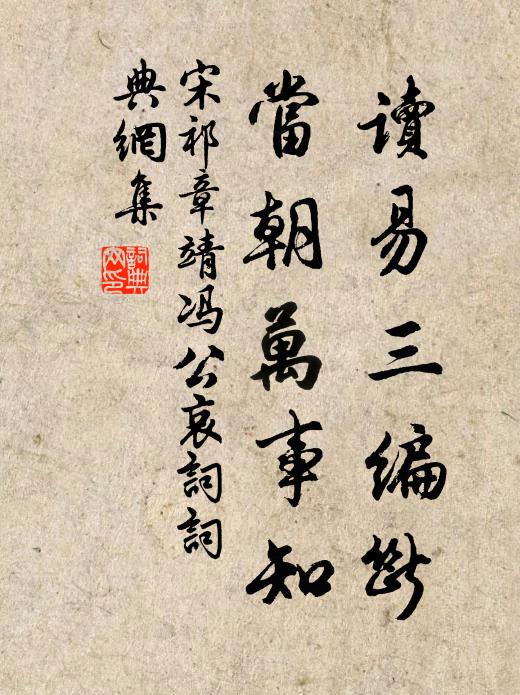 讀易三編斷
當朝萬事知
宋祁章靖冯公哀詞詞
典網集
詞典